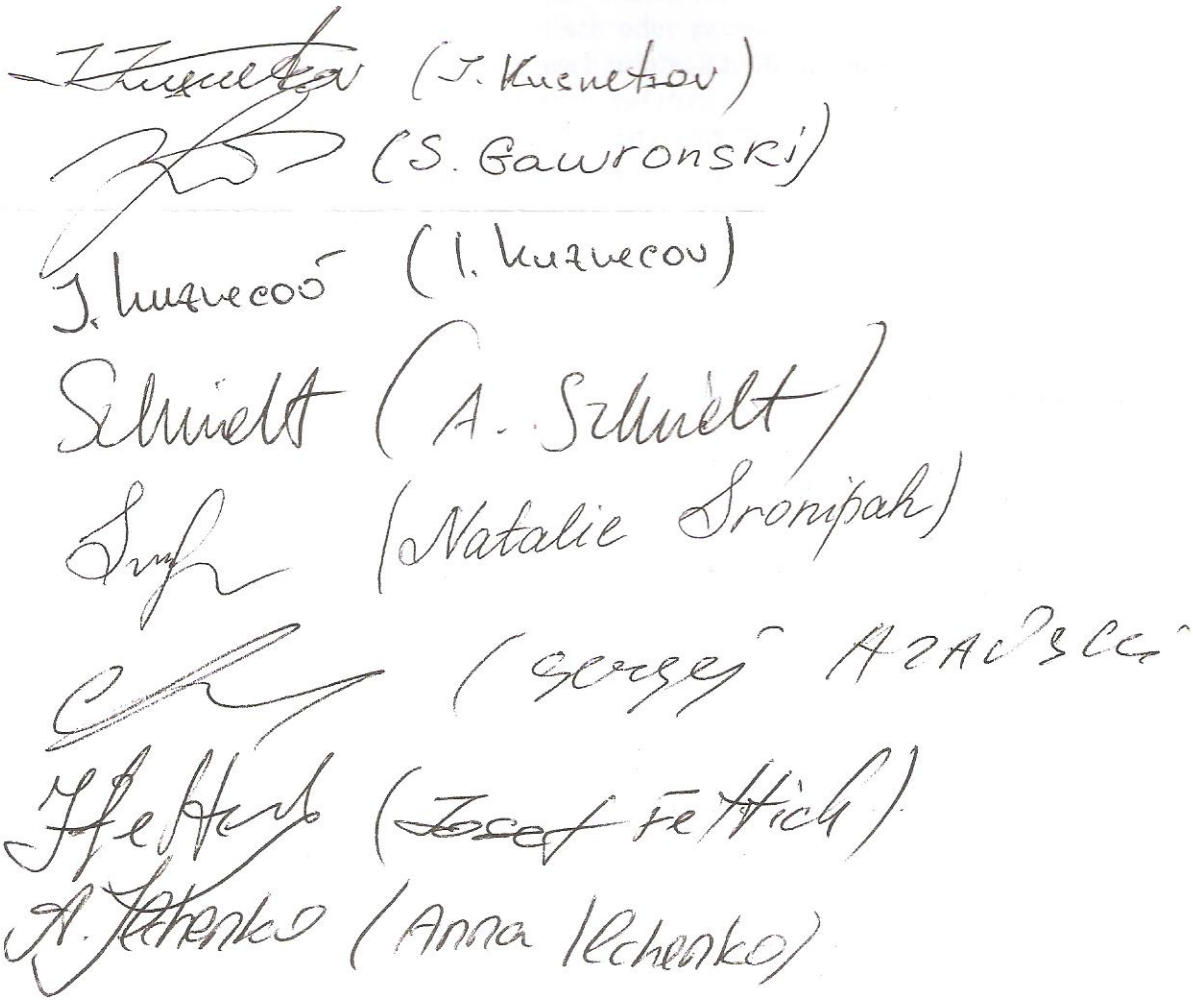 JKusnetzov (J. Kusnetzov)
(S. Gawronski)
J. Kuznecov (I. Kuznecov)
Schmidt (A. Schmidt)
(Natalie
(Sergej
JFettich (Josef Fettich)
A. Ilchenko (Anna Ilchenko)